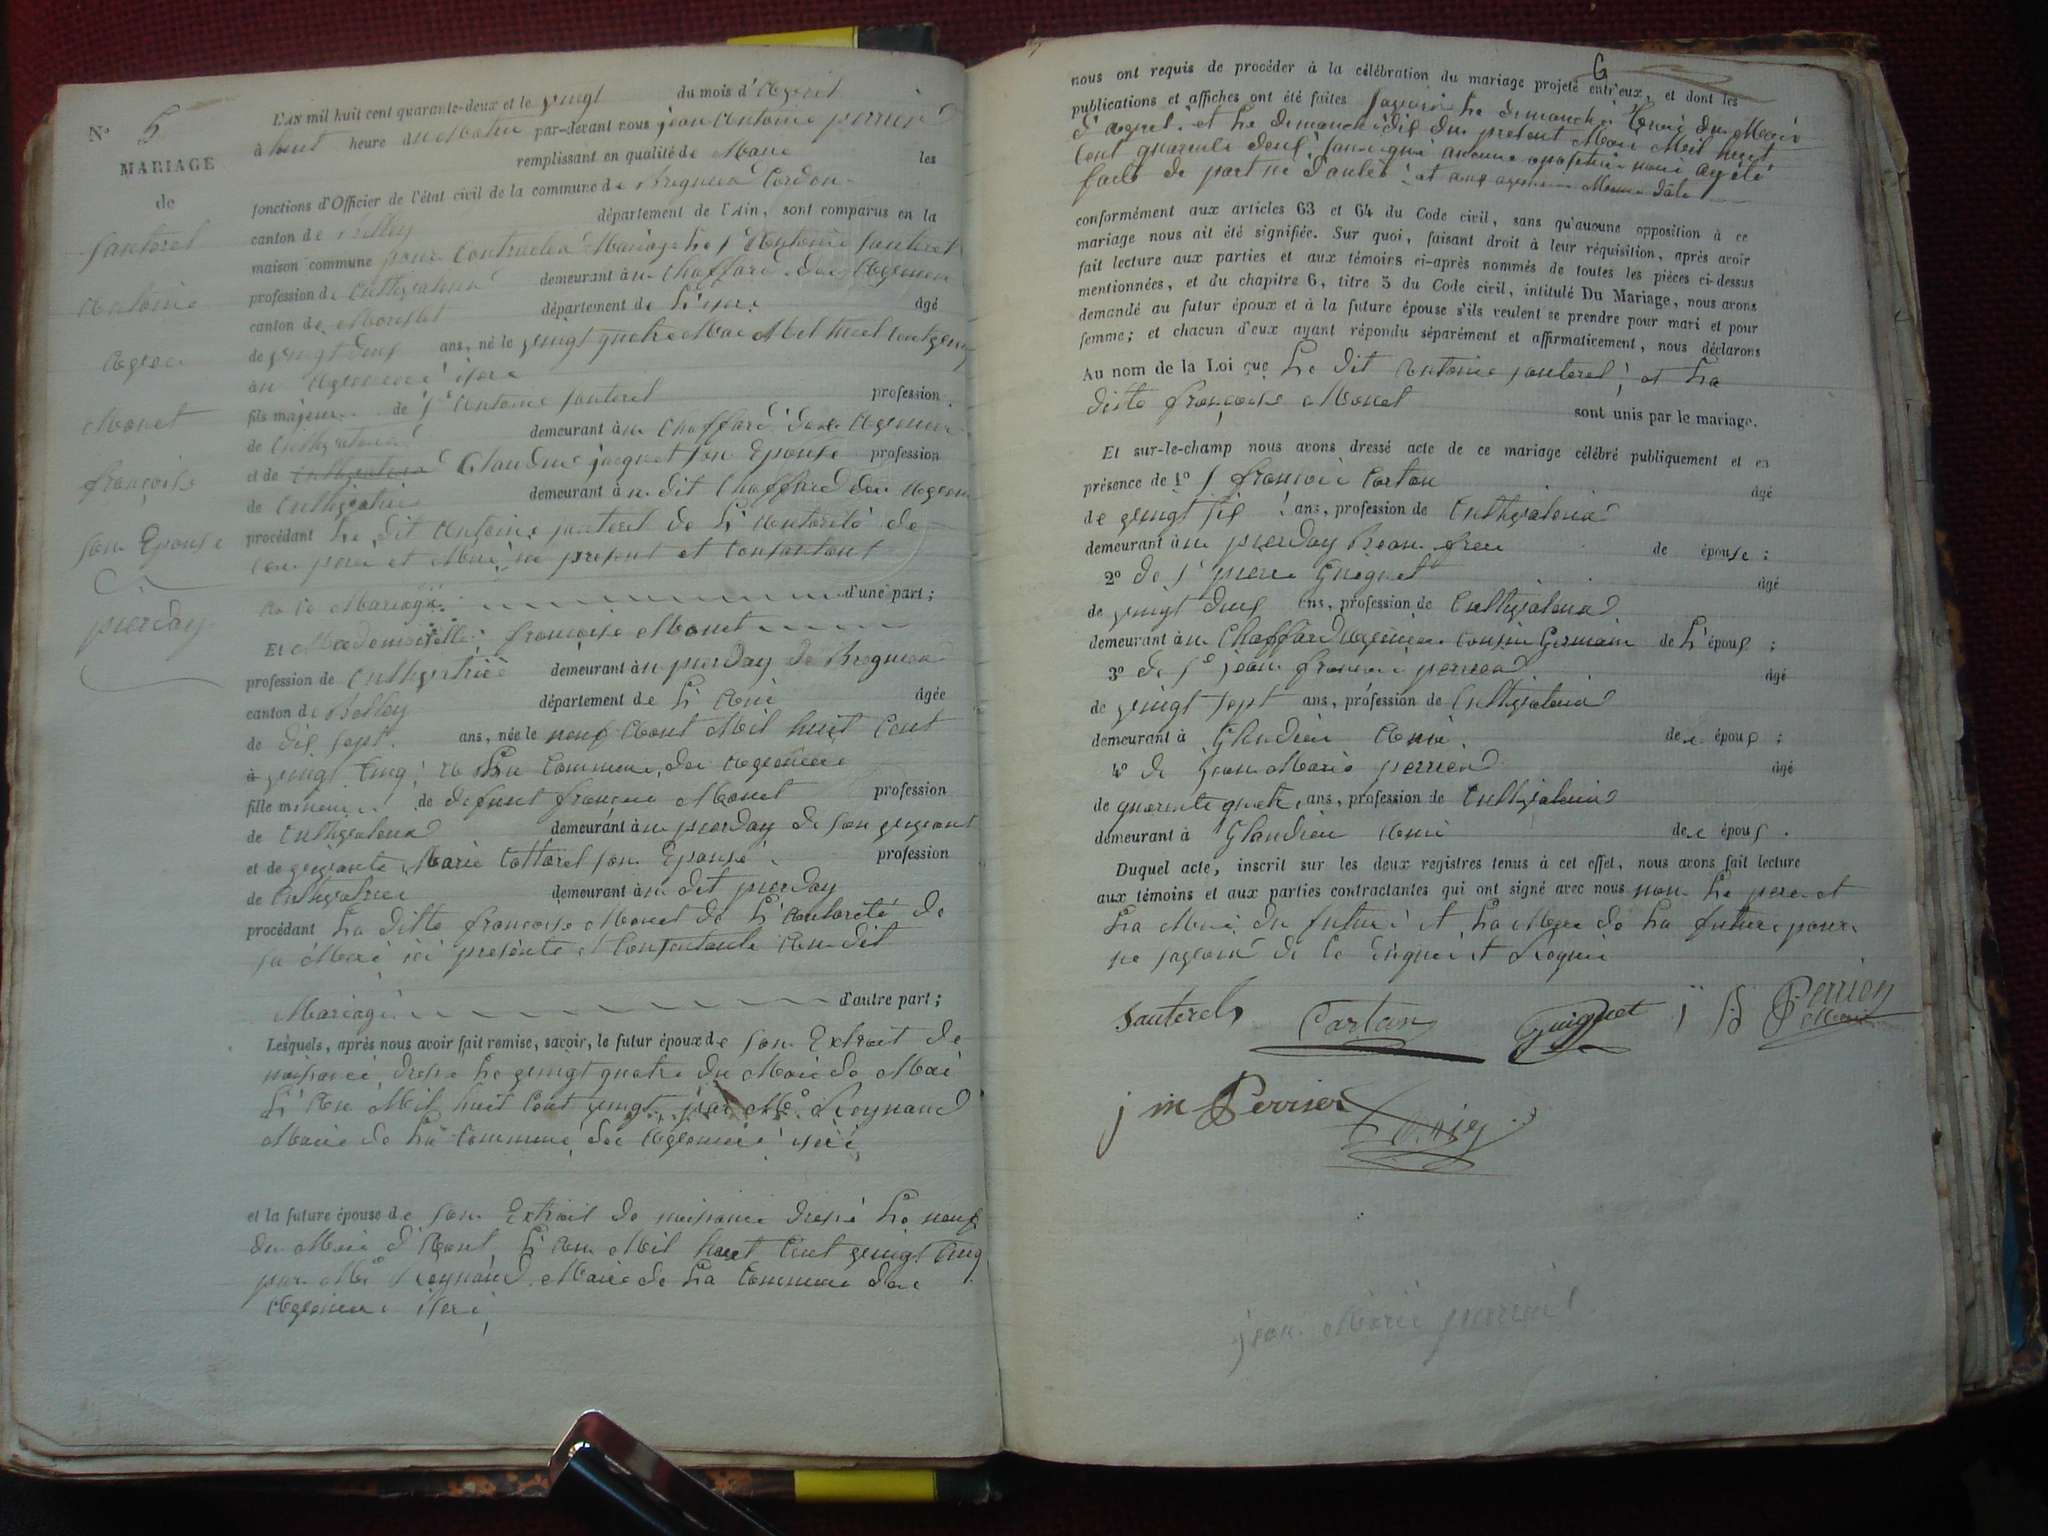 N.o 5
MARIAGE
de
Santerel
Antoine
avec
Monet
françoise
son Epouse
pierday
L'AN mil huit cent quarante-deux et le vingt du mois d'Avril
à huit heure du Matin par-devant nous jean Antoine perrier
remplissant en qualité de Maire les
fonctions d'Officier de l'état civil de la commune de Bregnier Cordon
canton de Belley département de l'Ain, sont comparus en la
maison commune pour Contracter Mariage Le S Antoine Santerel
profession de Cultivateur demeurant à Chaffard
canton de Morestel département de L'isere âgé
de vingt deux ans, né le vingt quatre Mai Mil huit cent vingt
fils majeur de S Antoine Santerel profession
de Cultivateur demeurant à Chaffard
et de Cultivateur Claudine jacquet son Epouse profession
de Cultivatrice demeurant à dit Chaffard
procédant Le dit Antoine Santerel de L'Autorité de
son père et Mere ici present et Consentant
Au dit Mariage d'une part;
Et Mademoiselle françoise Monet
profession de Cultivatrice demeurant à pierday de Bregnier
canton de Belley département de L'Ain âgée
de dix sept ans, née le neuf Aout Mil huit Cent
vingt Cinq
fille mineure de defunt françois Monet profession
de Cultivateur demeurant à pierday de son vivant
et de vivante Marie Cottarel son Epouse profession
de Cultivatrice demeurant à dit pierday
procédant La ditte françoise Monet de L'Autorité de
sa Mere ici presente et Consentante Au dit
Mariage d'autre part;
Lesquels, après nous avoir fait remise, savoir, le futur époux de son Extrait de
naissance dressé Le vingt quatre du Mois de Mai
L'An Mil huit Cent vingt par Mr Reynaud
Maire de La Commune
et la future épouse de son Extrait de naissance dressé Le neuf
du Mois d'Aout L'An Mil huit Cent vingt Cinq
par Mr Reynaud Maire de La Commune
isere
nous ont requis de procéder à la célébration du mariage projeté entr'eux, et dont les
publications et affiches ont été faites savoir Le dimanche
d'avril et Le dimanche dix du present Mois Mil huit
Cent quarente deux
faite de part ni d'autre
conformément aux articles 63 et 64 du Code civil, sans qu'aucune opposition à ce
mariage nous ait été signifiée. Sur quoi, faisant droit à leur réquisition, après avoir
fait lecture aux parties et aux témoins ci-après nommés de toutes les pièces ci-dessus
mentionnées, et du chapitre 6, titre 5 du Code civil, intitulé Du Mariage, nous avons
demandé au futur époux et à la future épouse s'ils veulent se prendre pour mari et pour
femme; et chacun d'eux ayant répondu séparément et affirmativement, nous déclarons
Au nom de la Loi que Le dit Antoine Santerel et La
ditte françoise Monet sont unis par le mariage.
Et sur-le-champ nous avons dressé acte de ce mariage célébré publiquement et en
présence de 1o S françois Cartan âgé
de vingt six ans, profession de Cultivateur
demeurant à pierday Beau frere de épouse;
2o de S pierre Guiguet âgé
de vingt deux ans, profession de Cultivateur
demeurant à Chaffard Cousin Germain de L'époux;
3o de S jean françois perrier âgé
de vingt sept ans, profession de Cultivateur
demeurant à Glandieu de époux;
4o de jean Marie perrier âgé
de quarente quatre ans, profession de Cultivateur
demeurant à Glandieu de époux.
Duquel acte, inscrit sur les deux registres tenus à cet effet, nous avons fait lecture
aux témoins et aux parties contractantes qui ont signé avec nous non Le pere et
La Mere du futur et La Mere de La future pour
ne savoir de Ce Enquis et Requis
Santerel Cartan Guiguet Perrier
j m Perrier
jean Marie perrier